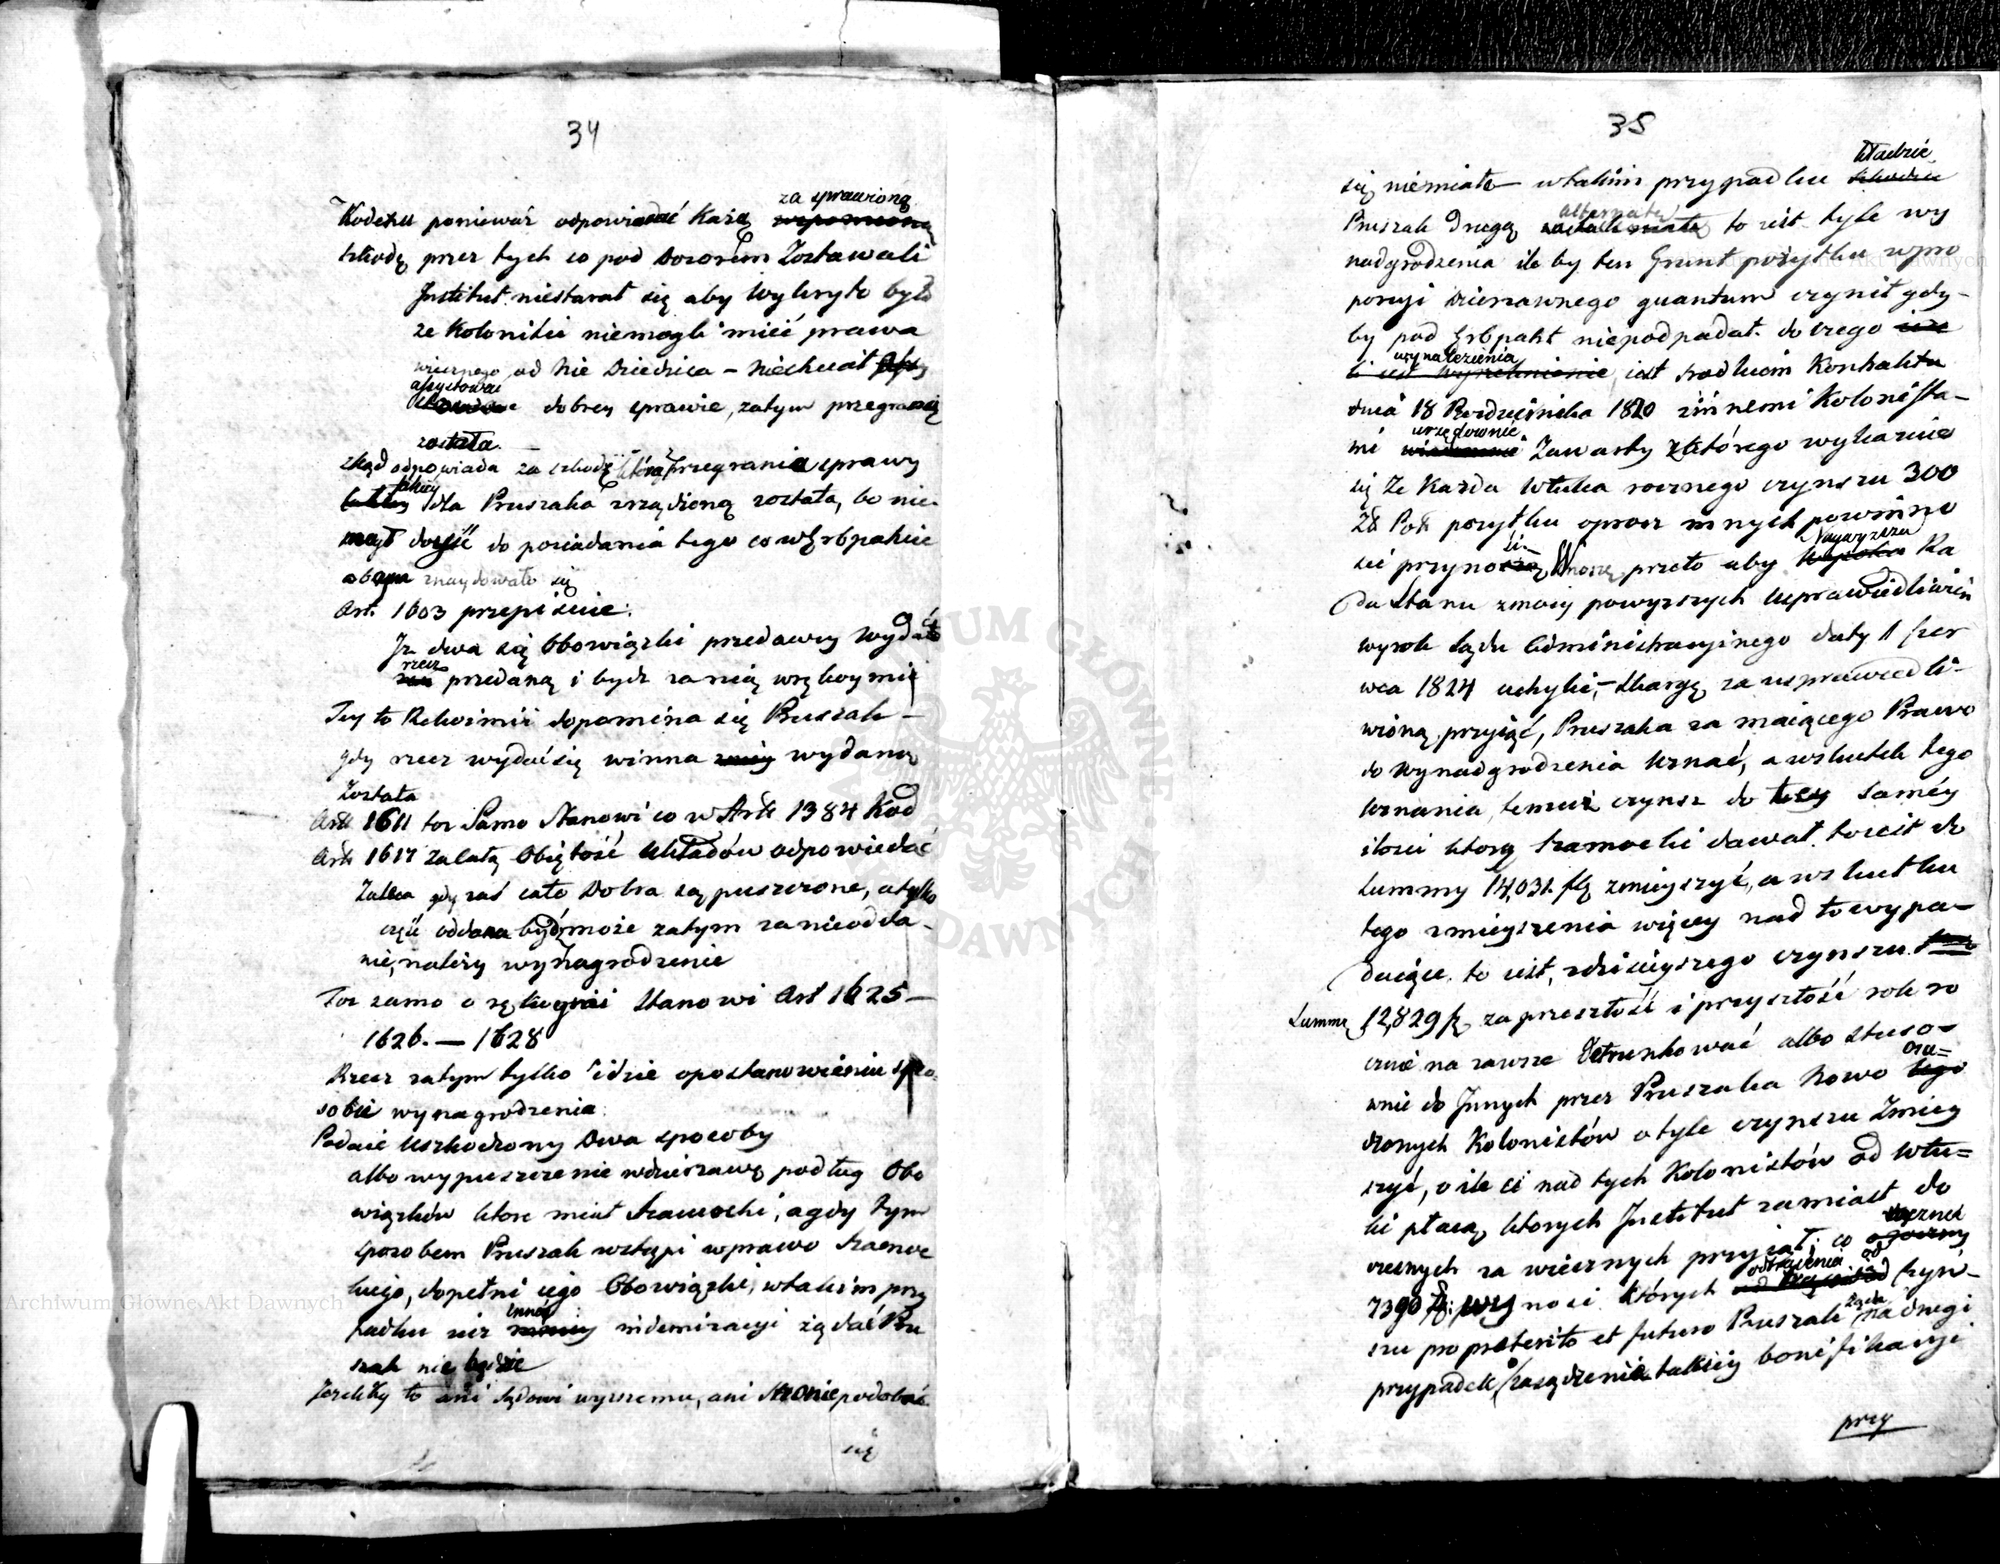 34
za sprawioną
Kodexu poniewáż odpowiadać Każą
szkodę przez tych co pod Dozorem Zostawali
Institut niestarał się aby Wykryto było
ze Koloniści niemogli mieć prawa
wiecznego od Nie Dziedzica – niechciał
assystować
dobrey sprawie, zatym przegraną
została
zkąd odpowiada za szkodę którą przegranie sprawy
jakiey
dla Pruszaka zrządzoną została, bo nie
mógł dojść do posiadania tego co w Erbpakcie
obcym znaydowało się
Art. 1603 przepisuie:
Są dwa obowiązki przedawcy wydać
rzecz
przedaną i bydź za nią rękoymią
Tey to Rekoimii dopomina się Pruszak –
gdy rzecz wydać się winna wydaną
Została
Art 1611 toż Samo Stanowi co w Art 1384 Kod
Art 1617 za całą Obiętość Układów odpowiedać
Każe gdy zaś całe Dobra są puszczone, a tylko
część oddana bydź może zatym za nieodda-
nie, należy wynagrodzenie
Toż samo o rękoymi Stanowi Art 1625 –
1626. — 1628
Rzecz zatym tylko idzie o postanowienie spo-
sobu wynagrodzenia
Podaie Uszkodzony Dwa sposoby
albo wypuszczenie w dzierzawę podług Obo
wiązków które miał Szamocki, a gdy tym
sposobem Pruszak wstąpi w prawo Szamoc
kiego, dopełni iego Obowiązki, w takim przy
inney
padku też indemizacyi żądać Pru
szak nie będzie
Jeżeliby to ani Sądowi wyższemu, ani Stronie podobać
się
35
się niemiało – w takim przypadku
kładzie
Pruszak Drugą alternatę to iest tyle wy
nadgrodzenia ile by ten Grunt pożytku w pro
porcyi dzierzawnego quantum czynił gdy-
by pod Erbpakt niepodpadał. do czego
wynalezienia
iest środkiem Kontraktu
dnia 18 Pazdziernika 1820 z innemi Kolonista-
urzędownie
mi Zawarty z którego wykazuie
się Ze Każda Włuka rocznego czynszu 300
28 Pol pożytku oprócz innych powinno
ści przynosi Wnoszę przeto aby Naywyższa Ra
da Stanu z mocy powyższych Usprawiedliwień
wyrok Sądu Administracyinego daty 11 Czer
wca 1824 uchylić, – skargę za usprawiedli-
wioną przyjąć, Pruszaka za maiącego Prawo
do wynadgrodzenia Uznać, a w skutek tego
Uznania, temuż czynsz do tey samey
ilości który Szamocki dawał to iest do
Summy 14,031 fl zmieyszyć, a w skutku
tego zmieyszenia więcey nad to wypa-
daiące to iest, dzisieyszego czynszu
Summę 12,829 fl za przeszłość i przyszłość rok ro
cznie na zawsze Detrunkować albo stoso-
wnie do Jnnych przez Pruszaka Nowo osa-
dzonych Kolonistów o tyle czynszu Zmiey
szyć, o ile ci nad tych Kolonistów od Włu-
ki płacą, których Institut zamiast do
czesnych za wiecznych przyiął. co
7390 fl wynosi których odtrącenia od czyn-
szu pro preterito et futuro Pruszak żąda na drugi
przypadek, zasądzenie takiey bonifikacyi
przy